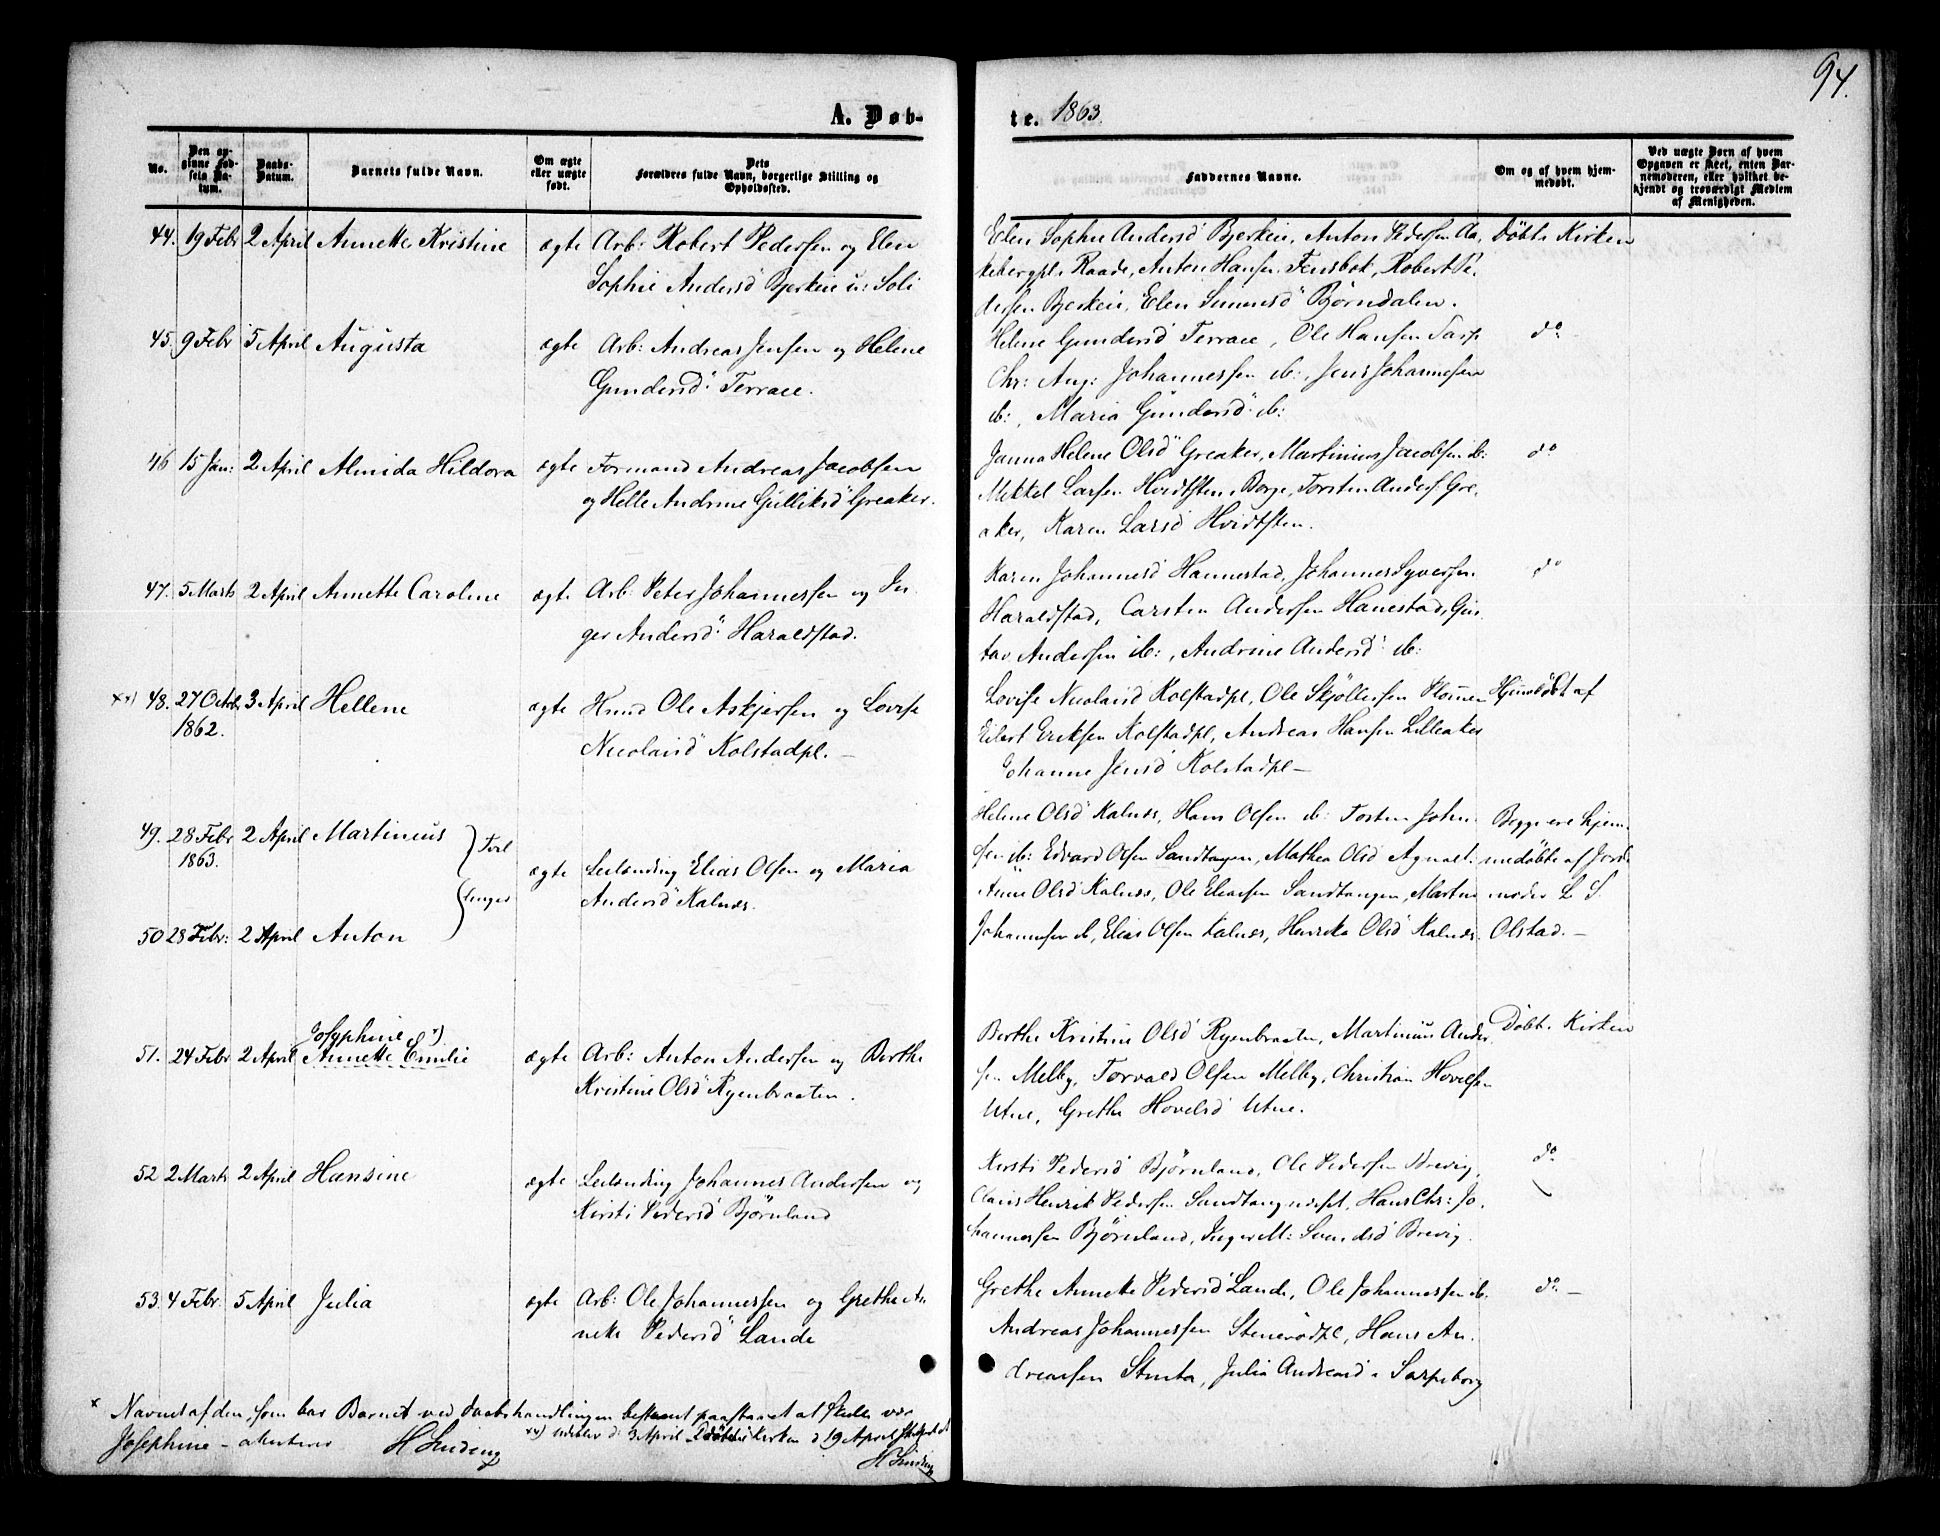 94.
A. Døb-
te. 1863.
No.
Den op-
givne Fød-
sels Da-
tum.
Daabs-
Datum.
Barnets fulde Navn.
Om ægte
eller uægte
født.
Dets
Forældres fulde Navn, borgerlige Stilling og
Opholdssted.
Faddernes Navne.
Om og af hvem hjem-
medøbt.
Ved uægte Børn af hvem
Opgaven er skeet, enten Bar-
nemoderen, eller hvilket be-
kjendt og troværdigt Medlem
af Menigheden.
44. 19 Febr 2 April Annette Kristine ægte Arb: Robert Pedersen og Elen
Sophie Andersd Bjerkeie u: Soli
Elen Sophie Andersd Bjerkeie, Anton Pedersen Aa,
kebergpl. Raade, Anton Hansen Fensbok, Robert Pe,
dersen Bjerkeie, Elen Simensd Bjørndalen.
Døbt i Kirken
45. 9 Febr 5 April Augusta ægte Arb: Andreas Jensen og Helene
Gundersd Terrace.
Helene Gundersd Terrace, Ole Hansen Tarp
Chr: Aug: Johannessen ib:, Jens Johannesen
ib:, Maria Gundersd ib:
do
46 15 Jan: 2 April Almida Hildora ægte Formand Andreas Jacobsen
og Helle Andrine Gulliksd Greaker.
Janna Helene Olsd Greaker, Martinius Jacobsen ib:
Mekkel Larsen Hvidtsten, Borge, Torsten Anders. Gre,
aker, Karen Larsd Hvidtsten.
do
47. 5 Marts 2 April Annette Caroline ægte Arb: Peter Johannessen og In,
ger Andersd Haraldstad.
Karen Johannesd Hannestad, Johannes Syversen
Haraldstad, Carsten Andersen Hanestad, Gus,
tav Andersen ib:, Andrine Andersd ib:
do
xx) 48. 27 Octbr 3 April Hellene ægte Knud Ole Askjersen og Lovise
1862. Nicolaisd Kolstadpl. —
Lovise Nicolaisd Kolstadpl, Ole Skjøllersen
Eilert Eriksen Kolstadpl, Andreas Hansen Lilleaker
Johanne Jensd Kolstadpl —
Hjemdøbt af
49. 28 Febr 2 April Martinius
1863.
Tvil
linger
ægte Leilænding Elias Olsen og Maria
Andersd Kalnæs.
50 28 Febr: 2 April Anton
Helene Olsd Kalnæs, Hans Olsen ib: Torsten Johan,
sen ib: Edvard Olsen Sandtangen, Mathea Olsd Agnalt:
Anne Olsd Kalnæs, Ole Eliassen Sandtangen, Martin
Johannesen ib, Elias Olsen Kalnæs, Henrikka Olsd Kalnæs.
Begge ere hjem-
medøbte af Jorde
moder L S.
Olstad. —
Josephine x).
51. 24 Febr 2 April Annette Emilie ægte Arb: Anton Andersen og Berthe
Kristine Olsd Ryenbraaten.
Berthe Kristine Olsd Ryenbraaten, Martinius Ander,
sen Melby, Torvald Olsen Melby, Christian Hovelsen
Utne, Grethe Hovelsd Utne.
Døbt i Kirken
52 2 Marts 2 April Hansine ægte Leilænding Johannes Andersen og
Kirsti Pedersd Bjørnland
Kirsti Pedersd Bjørnland, Ole Pedersen Brevig,
Claus Henrik Pedersen Sandtangen, Hans Chr: Jo,
hannessen Bjørnland, Inger M: Svendsd Brevig.
do
53. 4 Febr. 5 April Julia ægte Arb: Ole Johannessen og Grethe An,
neke Pedersd Lande
Grethe Anneke Pedersd Lande, Ole Johannessen ib.
Andreas Johannessen Stenerødpl, Hans An,
dreassen Lande, Julia Andreasd i Sarpsborg
do —
x Navnet af den, som bar Barnet ved Daabshandlingen bestemt paastaaet at skulle være
Josephine — attesteres H Linding
xx) 3 April i Kirken d 19 April
H Linding